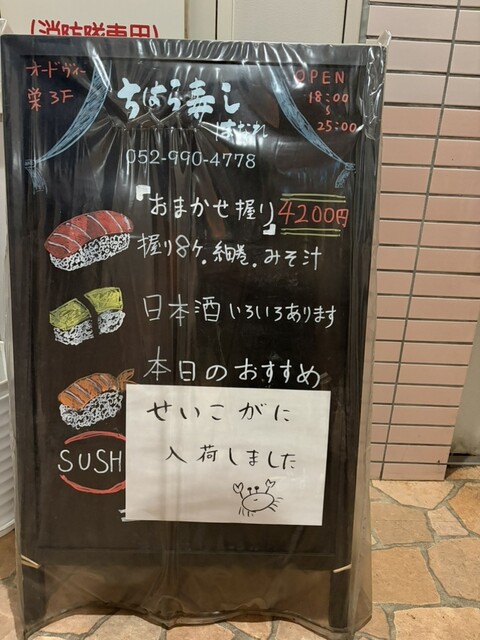 (消防隊専用)
オードヴィー
栄3F
ちはら寿し
はなれ
OPEN
18:00
~
25:00
052-990-4778
『おまかせ握り』4200円
握り8ケ.細巻.みそ汁
日本酒いろいろあります
本日のおすすめ
せいこがに
入荷しました
SUSH